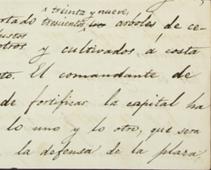 á treinta y nueve,
trescientos arboles de ce-
otros y cultivados, á costa
to. El comandante de
de fortificar la capital ha
lo uno y lo otro, que sera
la defensa de la plaza